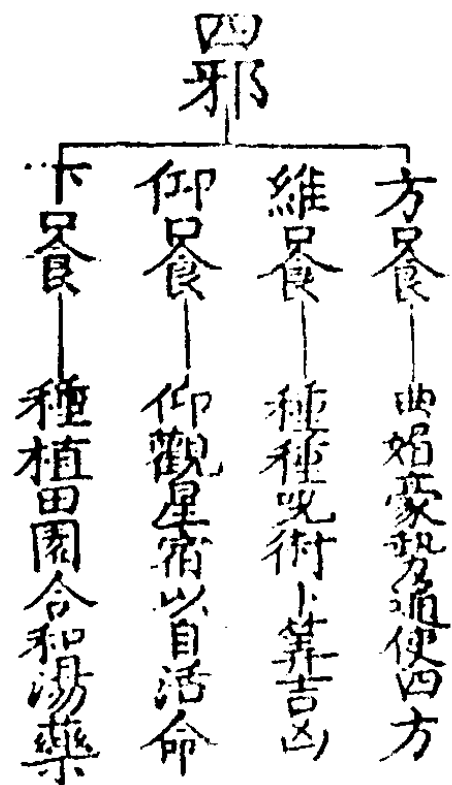 四邪
方口食
曲媚豪勢通使四方
維口食
種種呪術卜筭吉凶
仰口食
仰觀星宿以自活命
下口食
種植田園合和湯藥